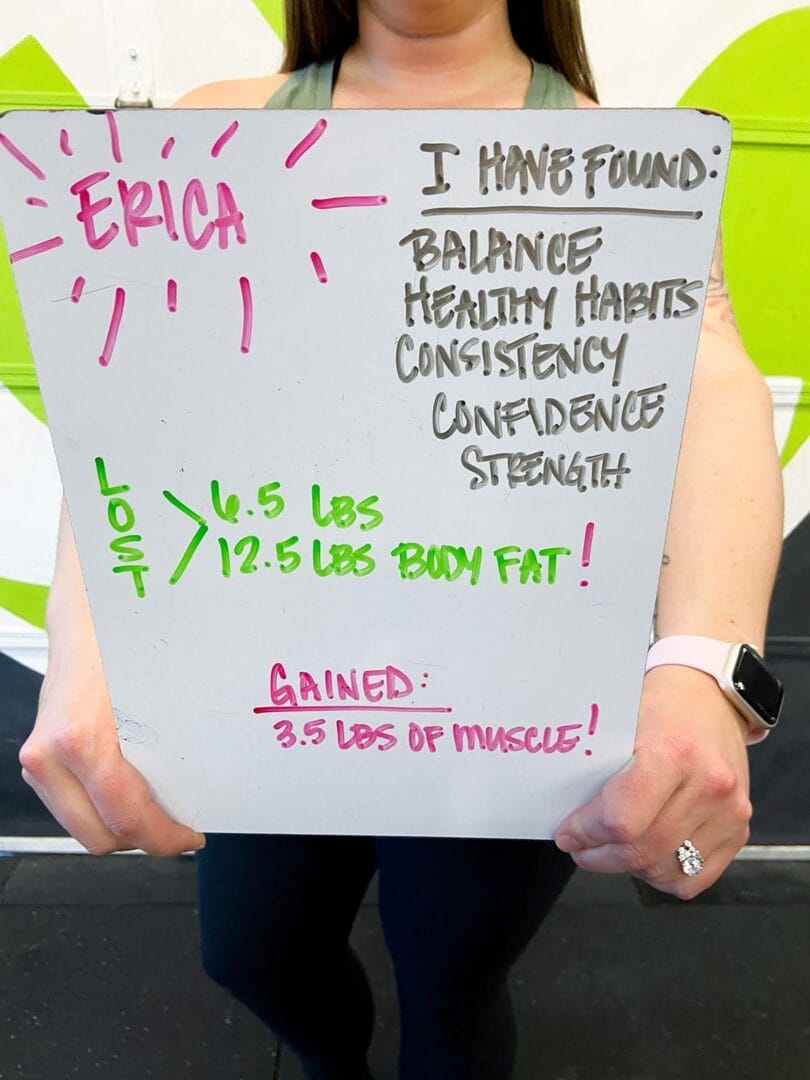 ERICA
I HAVE FOUND:
BALANCE
HEALTHY HABITS
CONSISTENCY
CONFIDENCE
STRENGTH
LOST
6.5 LBS
12.5 LBS BODY FAT!
GAINED:
3.5 LBS OF MUSCLE!